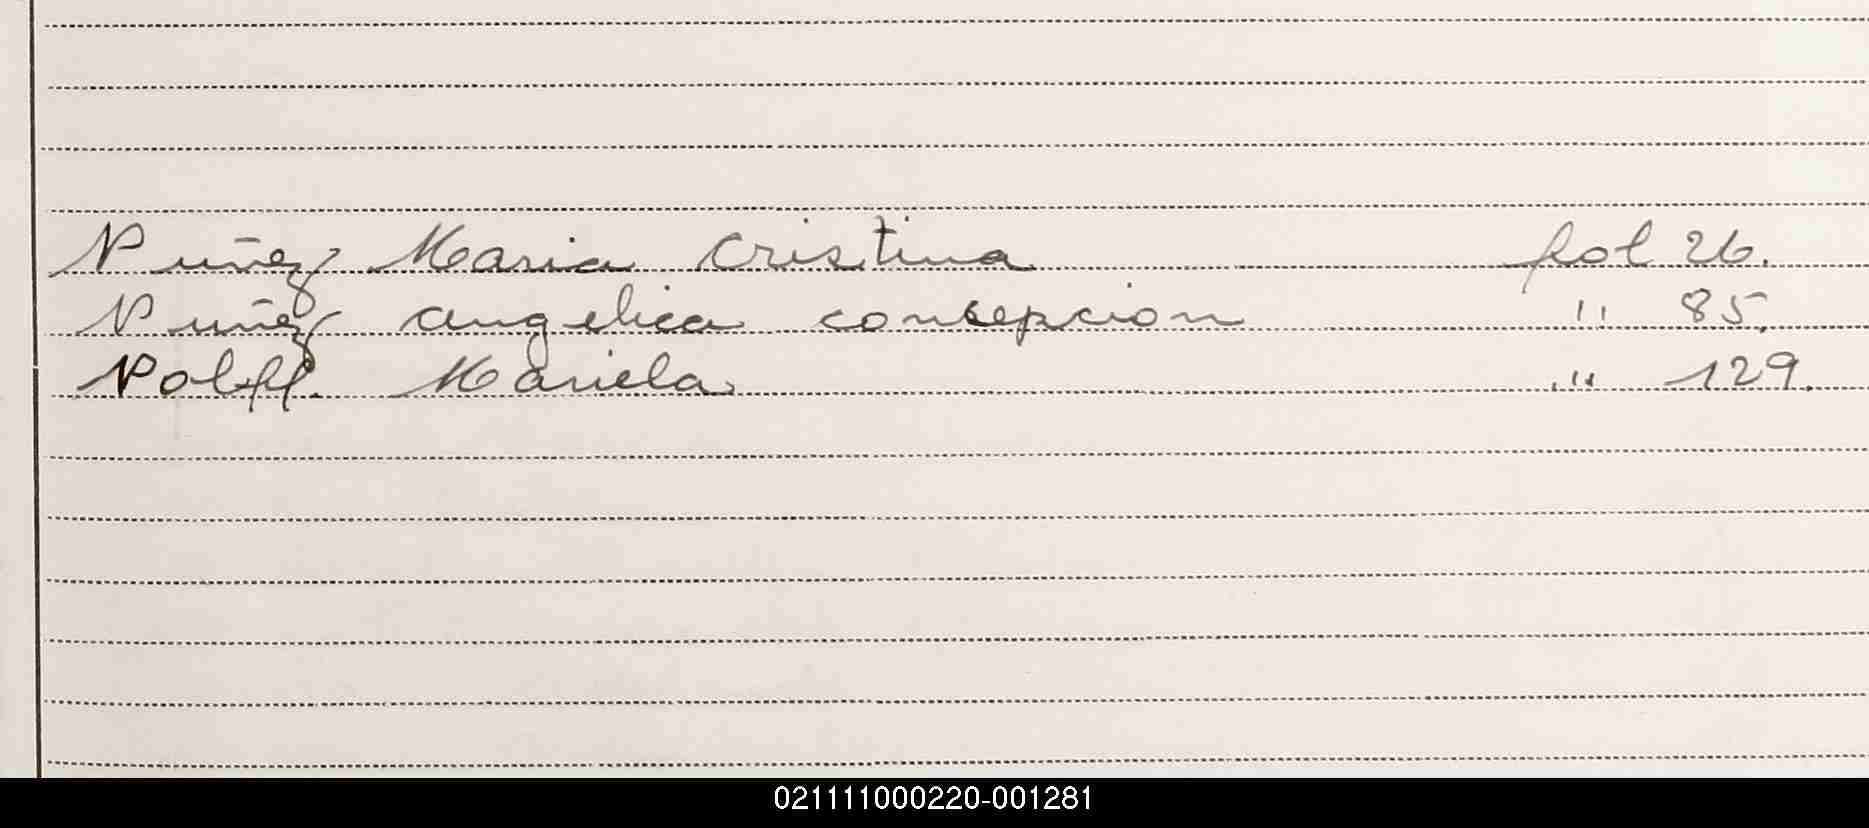 Nuñez Maria Cristina fol 26.
Nuñez angelica consepcion " 85.
Nolff. Mariela " 129.
021111000220-001281